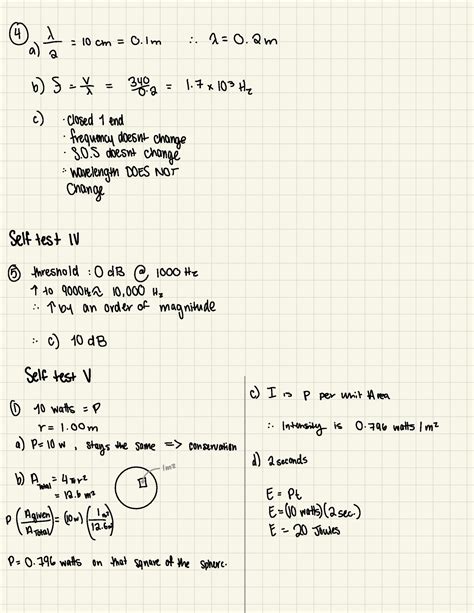 ④
a) λ/2 = 10 cm = 0.1m ∴ λ = 0.2m
b) f = v/λ = 340/0.2 = 1.7 × 10³ Hz
c) · closed 1 end
· frequency doesnt change
· S.O.S doesnt change
∴ wavelength DOES NOT
Change
Self test IV
⑤ threshold : 0 dB @ 1000 Hz
↑ to 9000Hz ≈ 10,000 Hz
∴ ↑ by an order of magnitude
∴ c) 10 dB
Self test V
① 10 watts = P
r = 1.00m
a) P = 10 W, stays the same => conservation
b) A Total = 4πr²
= 12.6 m²
1m²
P (A given / A Total) = (10w) (1 m² / 12.6m²)
P = 0.796 watts on that square of the sphere.
c) I is P per unit Area
∴ Intensity is 0.796 watts/m²
d) 2 seconds
E = Pt
E = (10 watts)(2 sec.)
E = 20 Joules